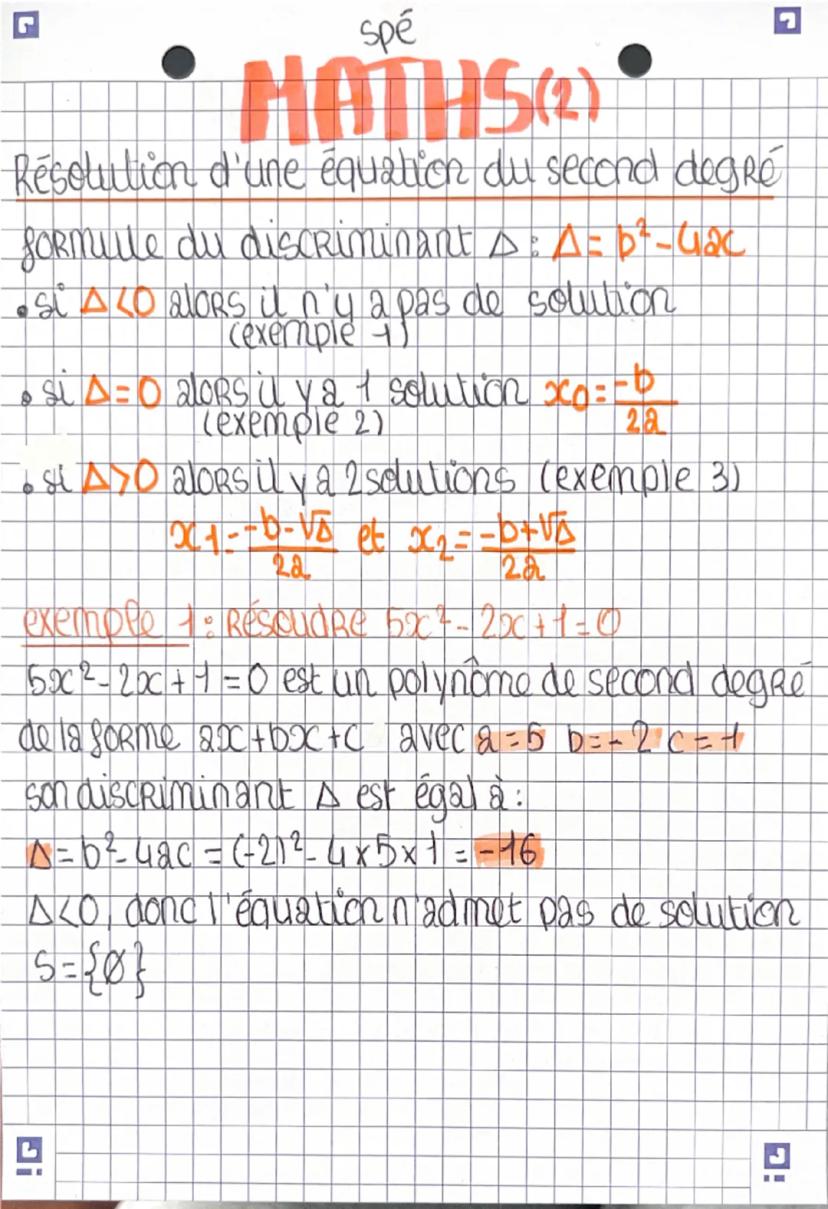 spé
MATHS(2)
Résolution d'une équation du second degré
formule du discriminant Δ : Δ = b² - 4ac
• si Δ<0 alors il n'y a pas de solution
(exemple 1)
• si Δ=0 alors il y a 1 solution x0 = -b/2a
(exemple 2)
• si Δ>0 alors il y a 2 solutions (exemple 3)
x1 = -b-√Δ/2a et x2 = -b+√Δ/2a
exemple 1 : Résoudre 5x² - 2x + 1 = 0
5x² - 2x + 1 = 0 est un polynôme de second degré
de la forme ax + bx + c avec a = 5 b = -2 c = 1
son discriminant Δ est égal à :
Δ = b² - 4ac = (-2)² - 4 x 5 x 1 = -16
Δ<0, donc l'équation n'admet pas de solution
S = {Ø}